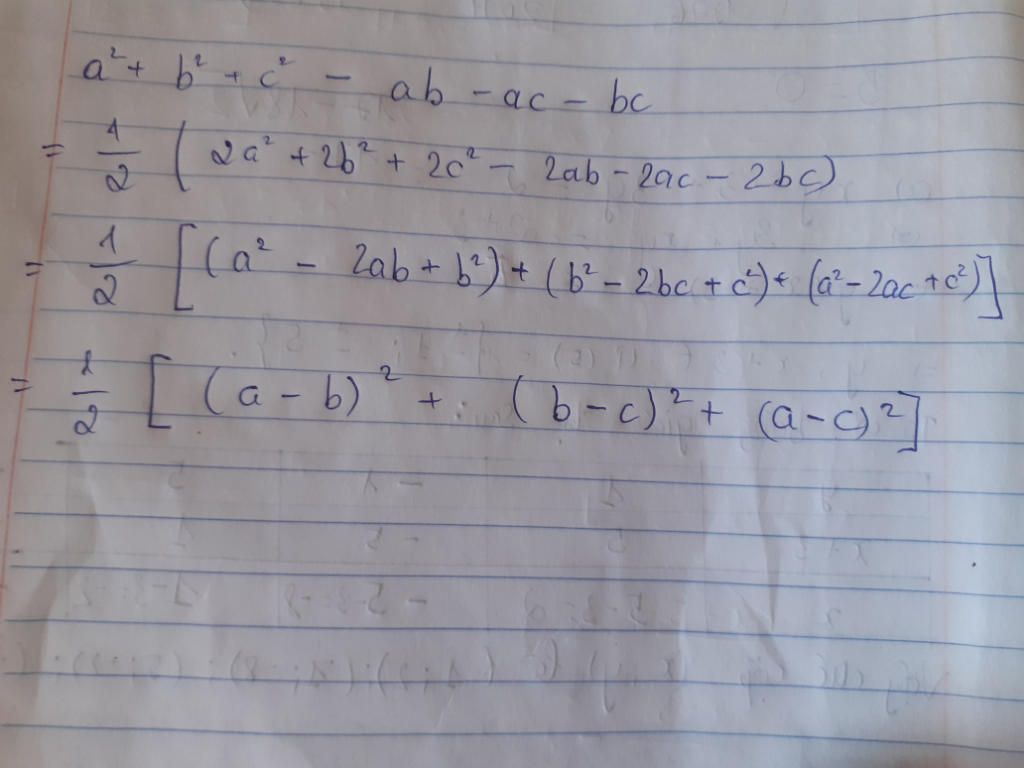 a² + b² + c² - ab - ac - bc
= 1/2 (2a² + 2b² + 2c² - 2ab - 2ac - 2bc)
= 1/2 [(a² - 2ab + b²) + (b² - 2bc + c²) + (a² - 2ac + c²)]
= 1/2 [(a - b)² + (b - c)² + (a - c)²]